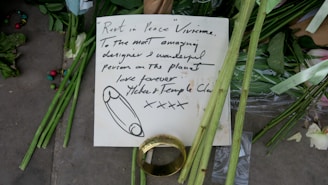 Rest in Peace Vivienne.
To the most amazing
designer & wonderful
person on the planet
love forever
& Temple
xxxx